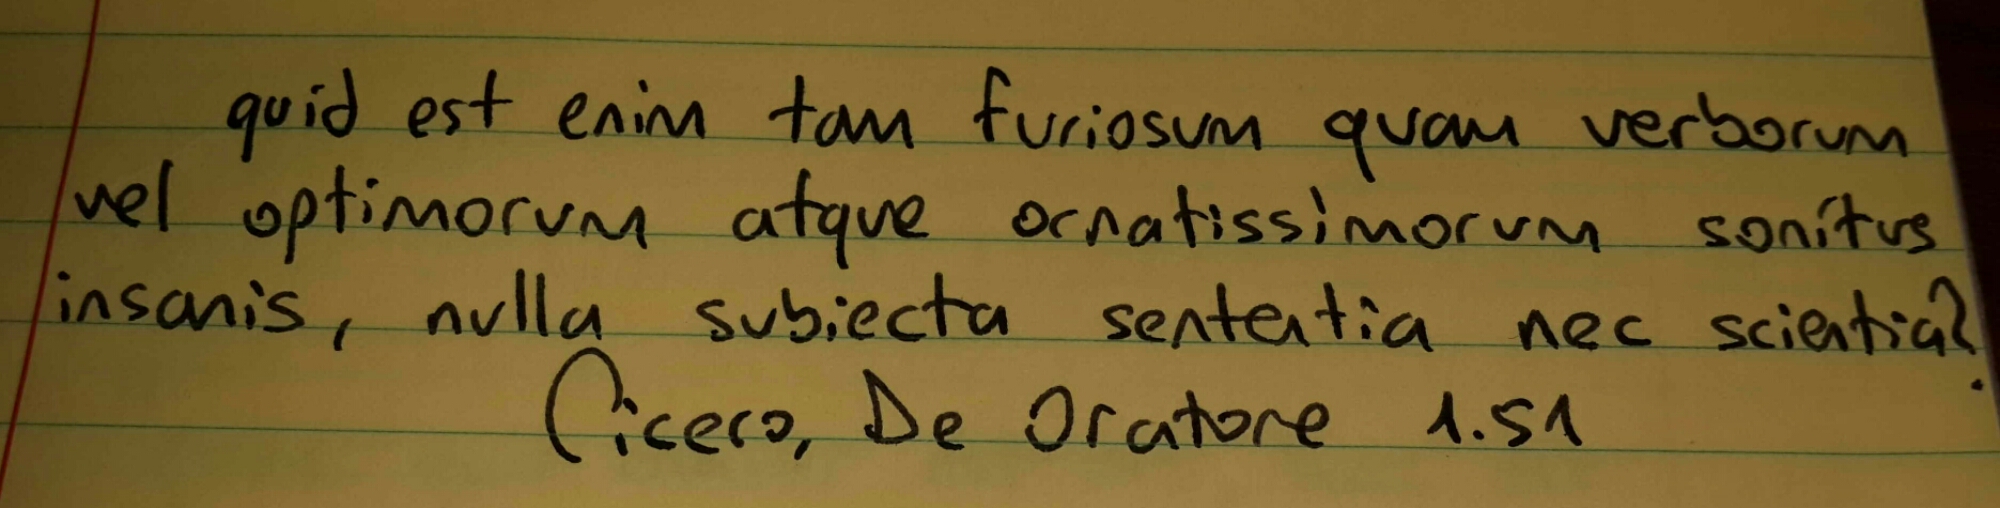 quid est enim tam furiosum quam verborum
vel optimorum atque ornatissimorum sonitus
insanis, nulla subiecta sententia nec scientia?
Cicero, De Oratore 1.51